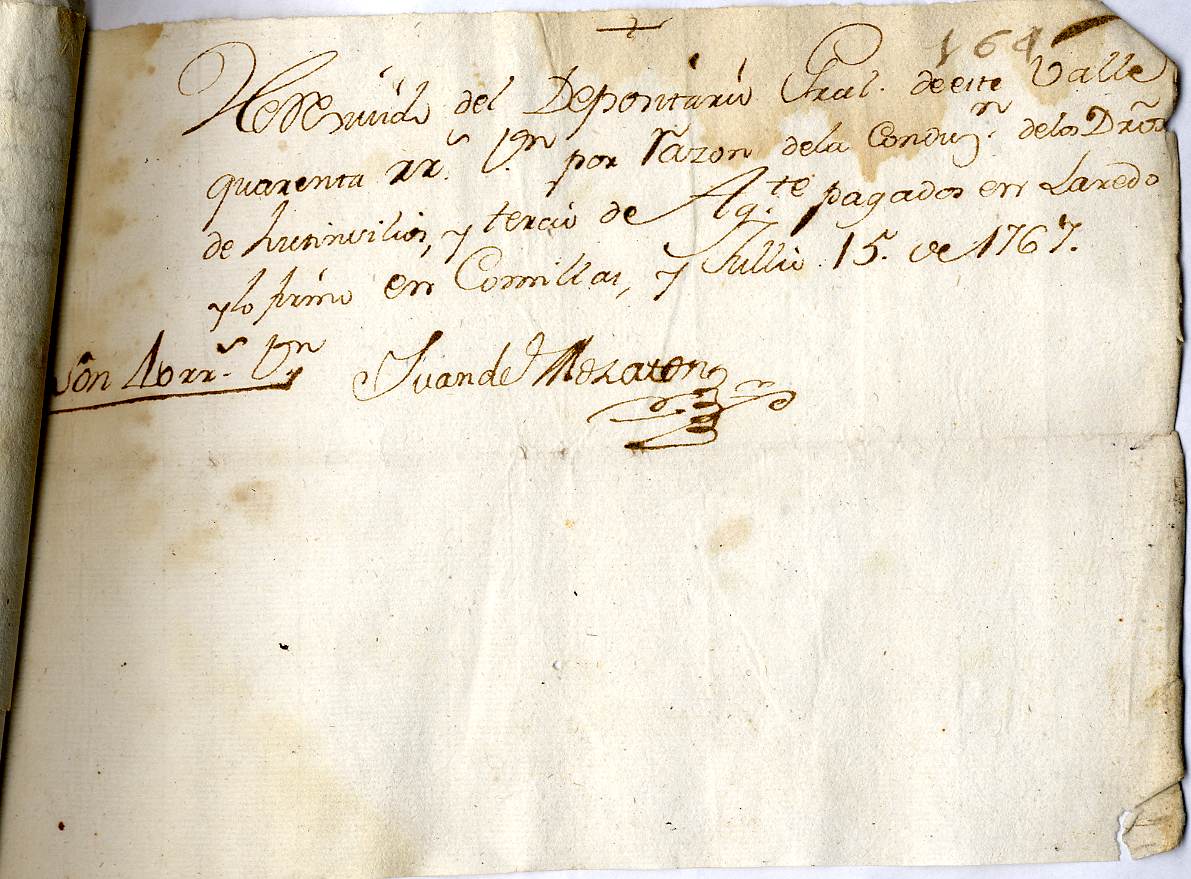 164
He Rezeuido del Depositario Gral. de este Valle
quarenta rr.s Vn por razon dela Conduz.n delos Dros
de Vtensilios, y tercio de Ag.te pagados en Laredo
y lo firmo en Comillas, y Jullio 15. de 1767.
Son 40 rr.s Vn Juan de